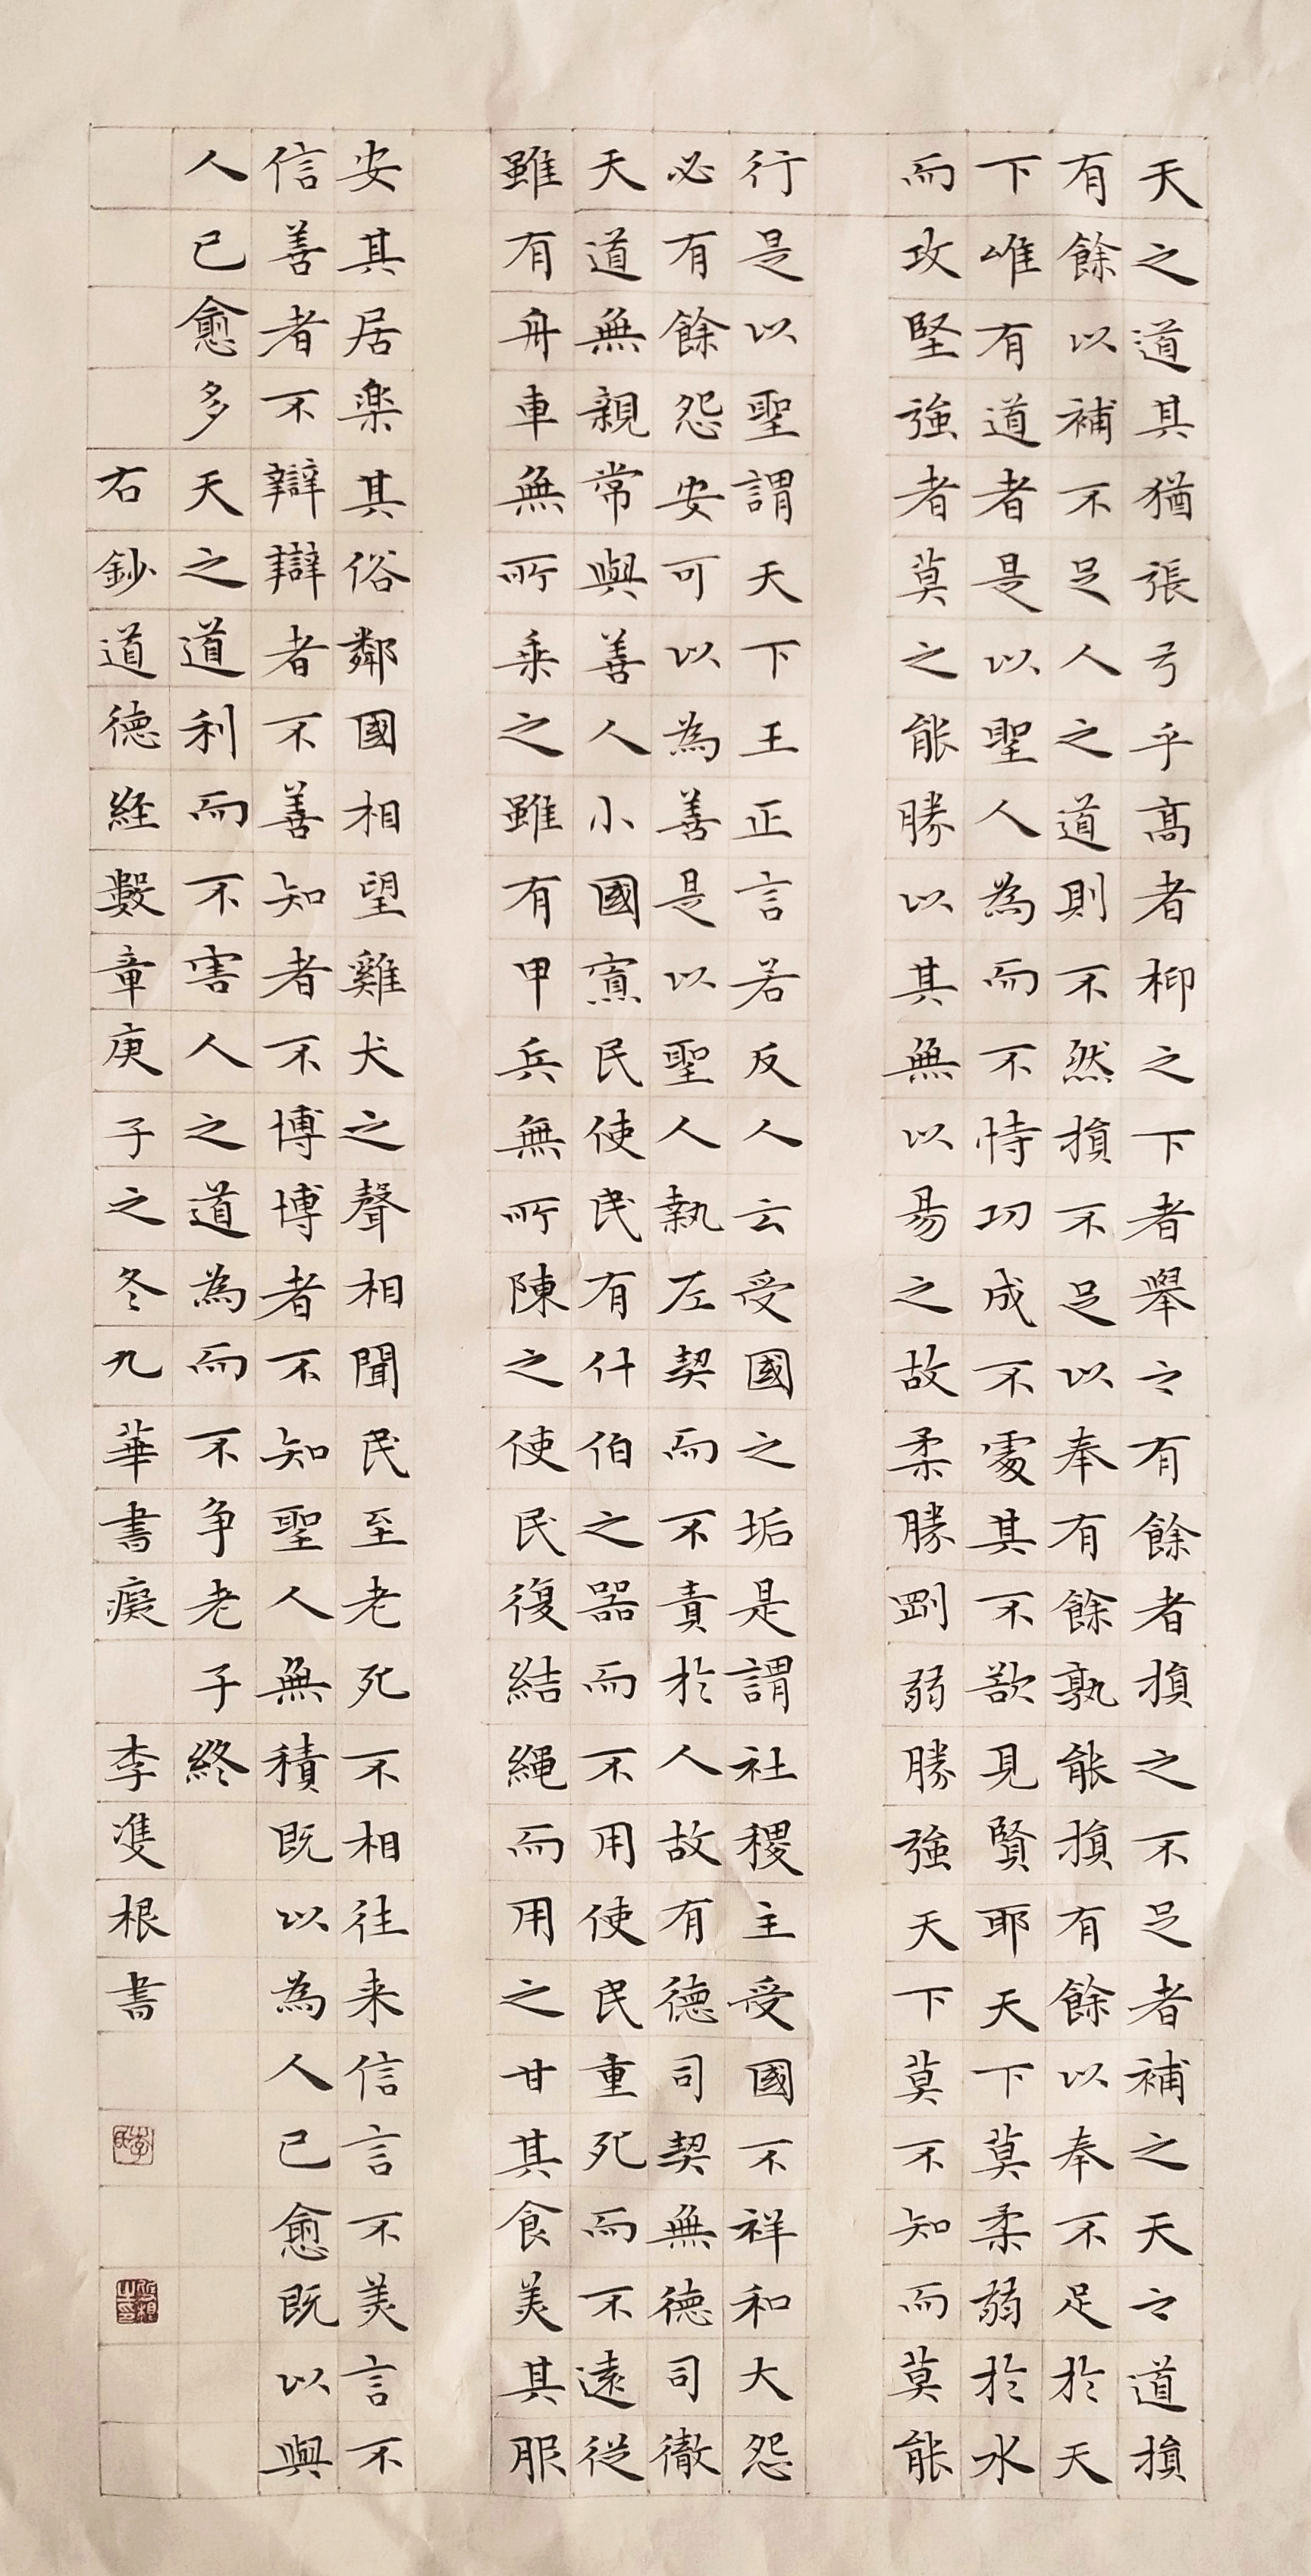 天之道其猶張弓乎高者抑之下者舉之有餘者損之不足者補之天之道損
有餘以補不足人之道則不然損不足以奉有餘孰能損有餘以奉不足於天
下唯有道者是以聖人為而不恃功成不處其不欲見賢耶天下莫柔弱於水
而攻堅強者莫之能勝以其無以易之故柔勝剛弱勝強天下莫不知而莫能
行是以聖謂天下王正言若反人云受國之垢是謂社稷主受國不祥和大怨
必有餘怨安可以為善是以聖人執左契而不責於人故有德司契無德司徹
天道無親常與善人小國寡民使民有什伯之器而不用使民重死而不遠從
雖有舟車無所乘之雖有甲兵無所陳之使民復結繩而用之甘其食美其服
安其居樂其俗鄰國相望雞犬之聲相聞民至老死不相往来信言不美言不
信善者不辯辯者不善知者不博博者不知聖人無積既以為人己愈既以與
人已愈多天之道利而不害人之道為而不争老子終
右鈔道德経數章庚子之冬九華書癡 李隻根書